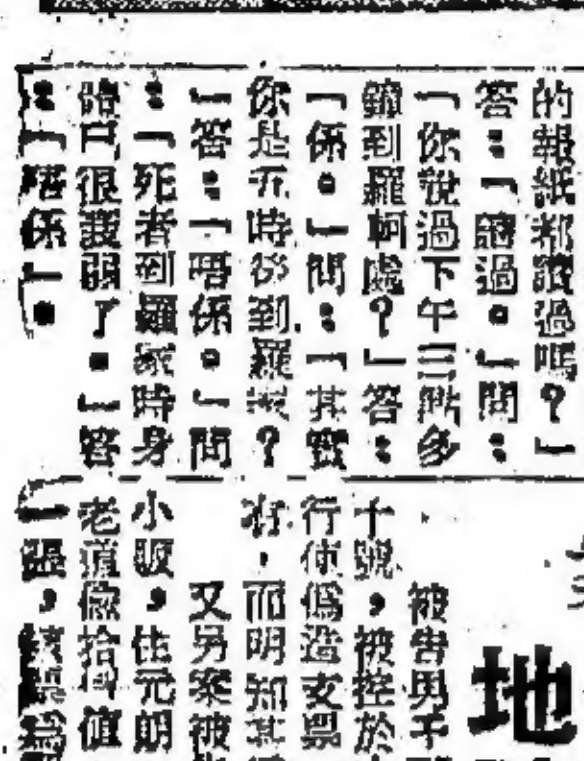 的報紙都讀過嗎？」
答：「讀過。」問：
「你說過下午三點多
鐘到羅柯處？」答：
「係。」問：「其實
你是五時後到羅家？
」答：「唔係。」問
：「死者到羅家時身
體已很衰弱了。」答
：「唔係」。
地
被告男子
十號，被控於
行使偽造支票
而明知其
又另案被
小販，住元朗
老道撿拾 值
一張，